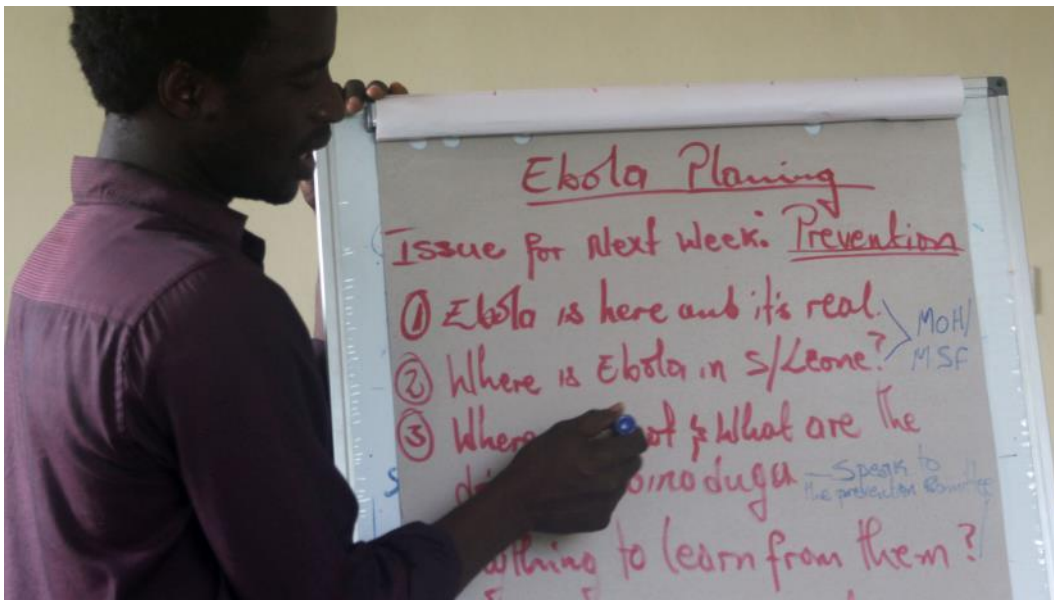 Ebola Planing
Issue for Next Week: Prevention
① Ebola is here and it's real.
② Where is Ebola in S/Leone?
MOH/
MSF
③ Where & What are the
Speak to
the prevention
to learn from them?